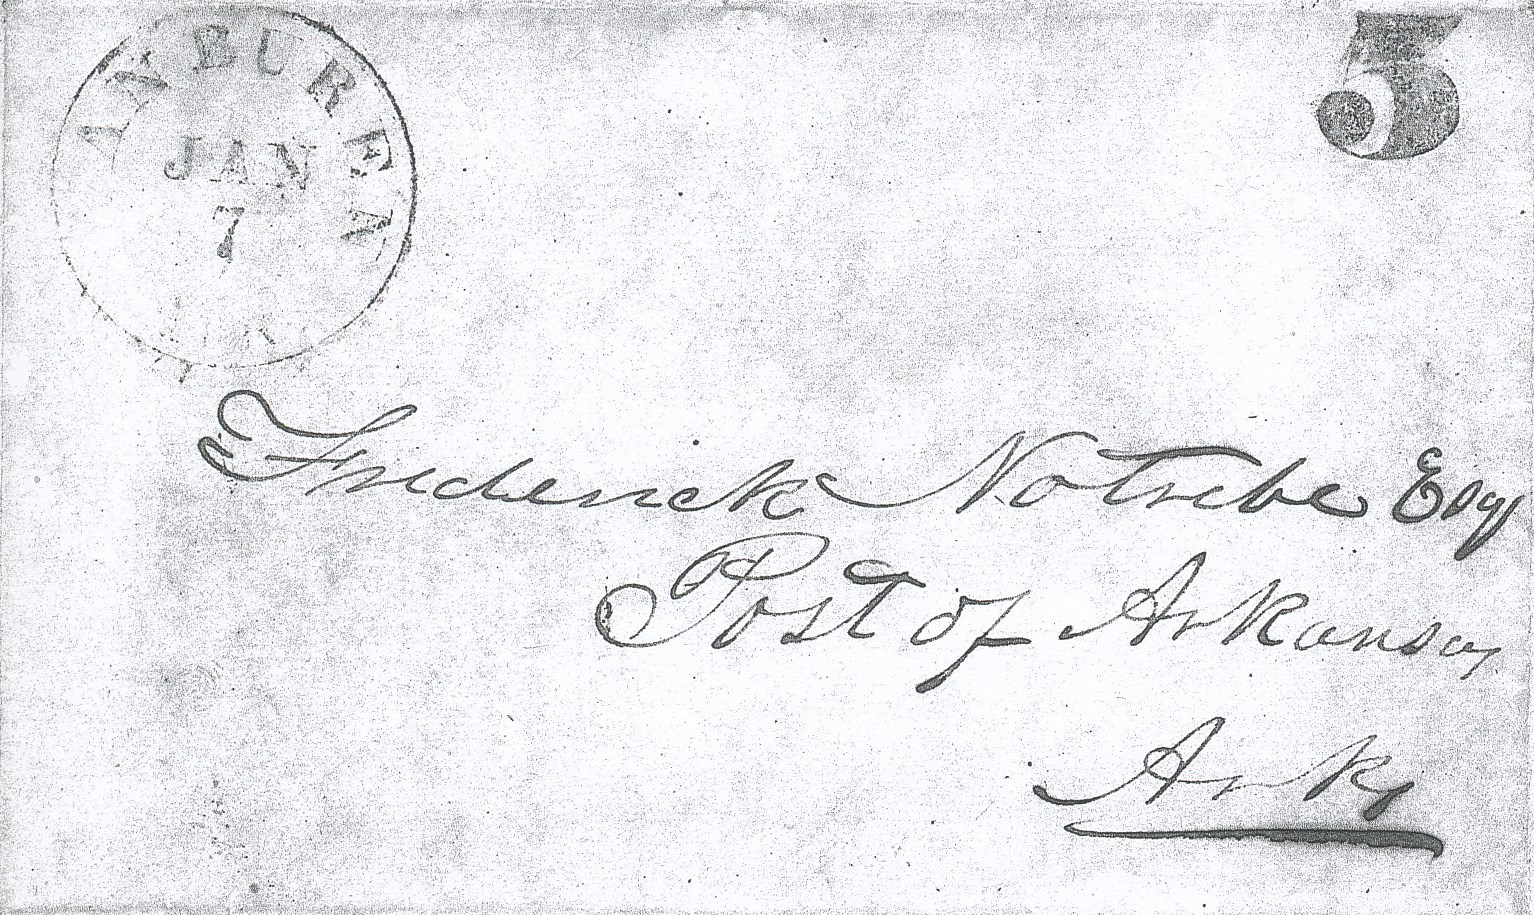 AN BUREN
JAN
7
5
Frederick Notrebe Esqr
Post of Arkansas
Arks